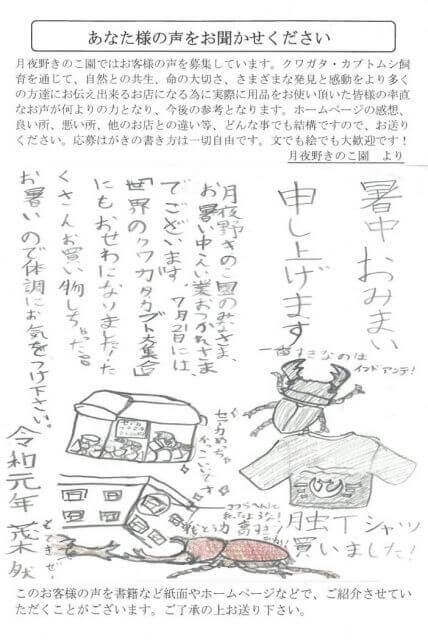 あなた様の声をお聞かせください
月夜野きのこ園ではお客様の声を募集しています。クワガタ・カブトムシ飼
育を通じて、自然との共生、命の大切さ、さまざまな発見と感動をより多く
の方達にお伝え出来るお店になる為に実際に用品をお使い頂いた皆様の率直
なお声が何よりの力となり、今後の参考となります。ホームページの感想、
良い所、悪い所、他のお店との違い等、どんな事でも結構ですので、お送り
ください。応募はがきの書き方は一切自由です。文でも絵でも大歓迎です！
月夜野きのこ園　より
暑中おみまい
申し上げます
月夜野きのこ園のみなさま、
お暑い中えい業おつかれさま
でございます。7月21日には、
「世界のクワガタカブト大集合」
にもおせわになりました！た
くさんお買い物しちゃった
お暑いので体調にお気をつけ下さい。
令和元年
一番すきなのは
インドアンテ！
虫Tシャツ
買いました！
このお客様の声を書籍など紙面やホームページなどで、ご紹介させていた
だくことがございます。ご了承の上お送り下さい。